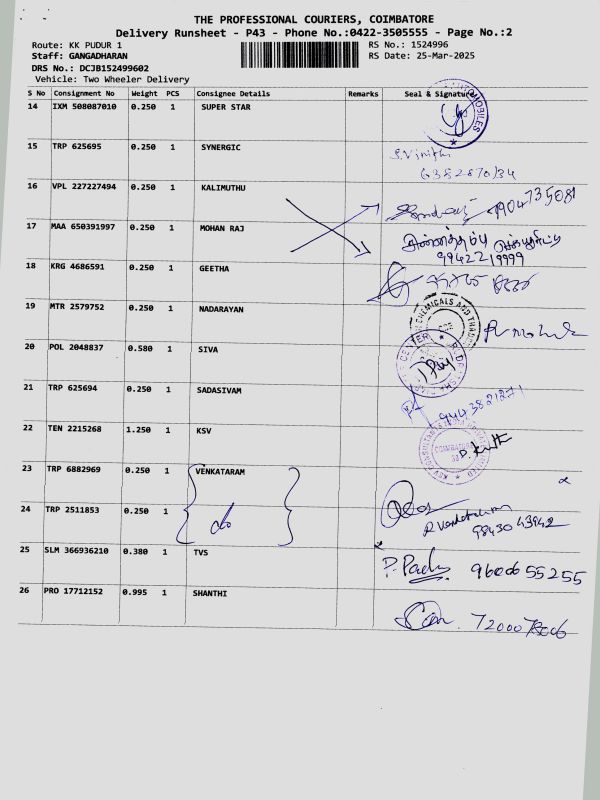 THE PROFESSIONAL COURIERS, COIMBATORE
Delivery Runsheet - P43 - Phone No.:0422-3505555 - Page No.:2
Route: KK PUDUR 1 RS No.: 1524996
Staff: GANGADHARAN RS Date: 25-Mar-2025
DRS No.: DCJB152499602
Vehicle: Two Wheeler Delivery
S No Consignment No Weight PCS Consignee Details Remarks Seal & Signature
14 IXM 508087010 0.250 1 SUPER STAR
15 TRP 625695 0.250 1 SYNERGIC S.Vinith
16 VPL 227227494 0.250 1 KALIMUTHU 9904735081
17 MAA 650391997 0.250 1 MOHAN RAJ
9942219999
18 KRG 4686591 0.250 1 GEETHA
19 MTR 2579752 0.250 1 NADARAYAN
20 POL 2048837 0.580 1 SIVA
21 TRP 625694 0.250 1 SADASIVAM 9443821271
22 TEN 2215268 1.250 1 KSV
23 TRP 6882969 0.250 1 VENKATARAM
24 TRP 2511853 0.250 1 do
9843043942
25 SLM 366936210 0.380 1 TVS 9600655255
26 PRO 17712152 0.995 1 SHANTHI